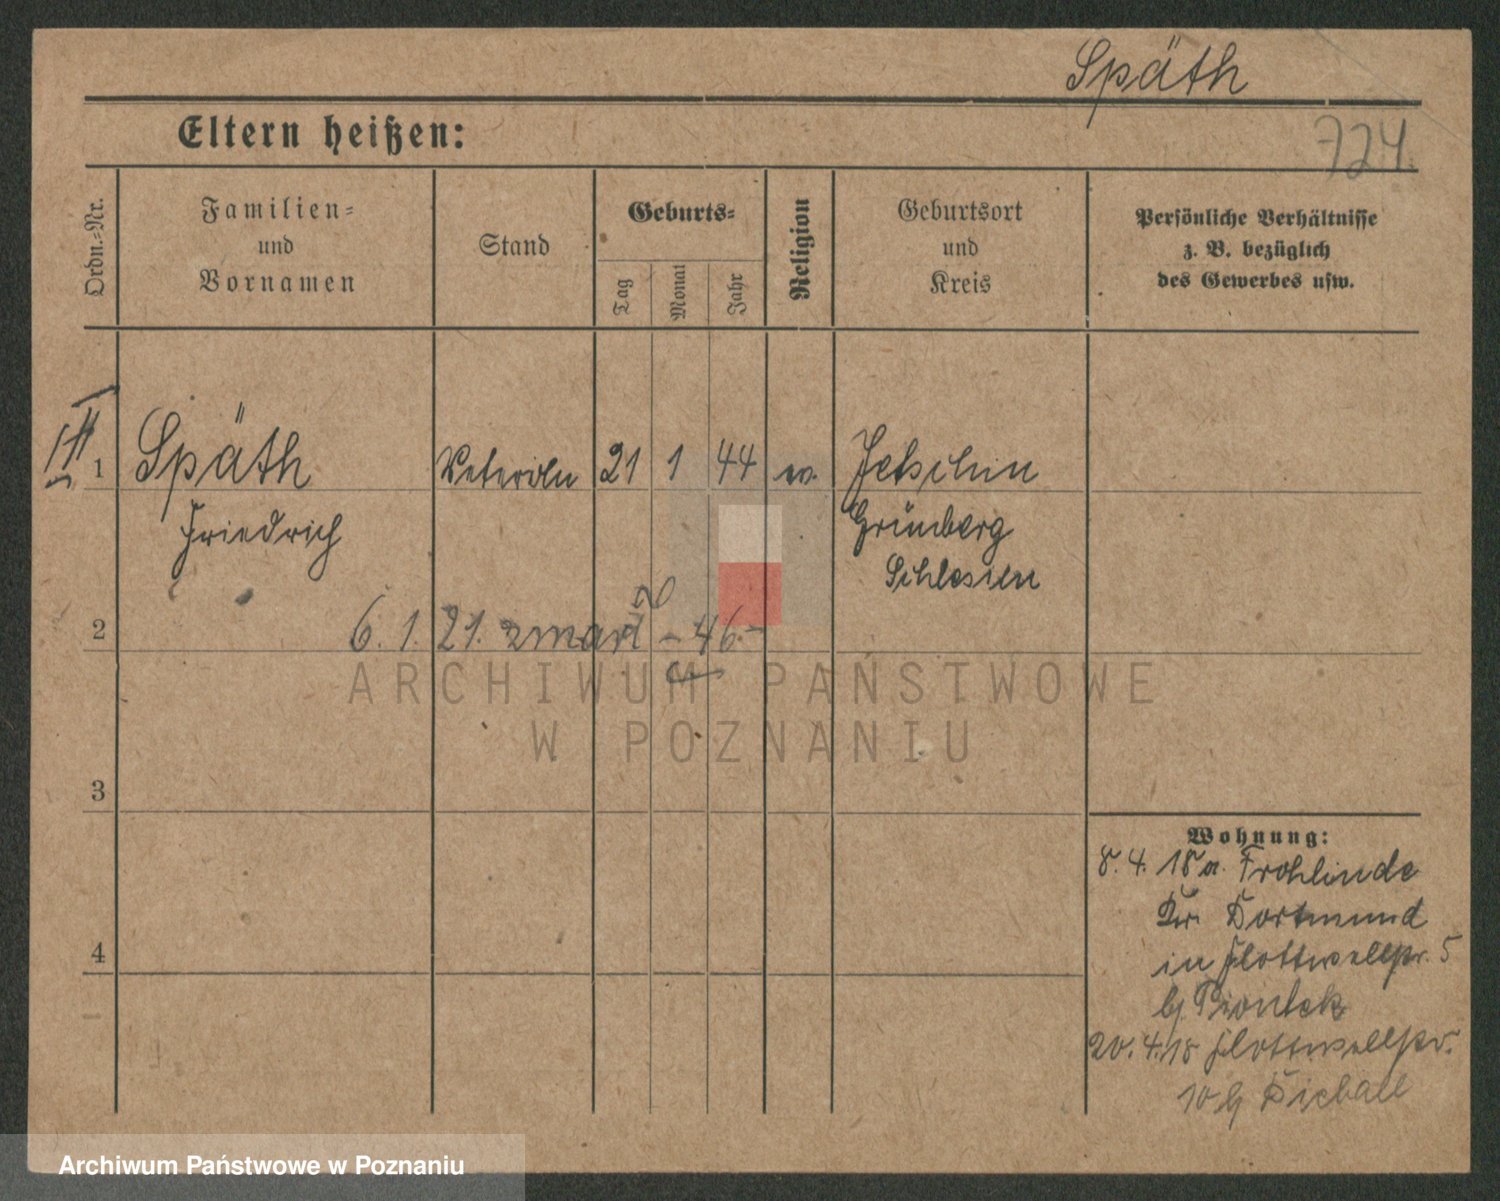 Späth
Eltern heißen:
724.
Ordn.=Nr.
Familien=
und
Vornamen
Stand
Geburts=
Tag
Monat
Jahr
Religion
Geburtsort
und
Kreis
Persönliche Verhältnisse
z. B. bezüglich
des Gewerbes usw.
1
Späth
Veterän
21
1
44
ev.
Jetschin
Friedrich
Grünberg
Schlesien
2
6. 1. 21. zmarł - 46.-
ARCHIWUM PAŃSTWOWE
W POZNANIU
3
Wohnung:
8. 4. 18 a. Frohlinde
Kr. Dortmund
in Flottwellstr. 5
b/ Piontek
4
20. 4. 18 Flottwellstr.
10 b/ Dieball
Archiwum Państwowe w Poznaniu